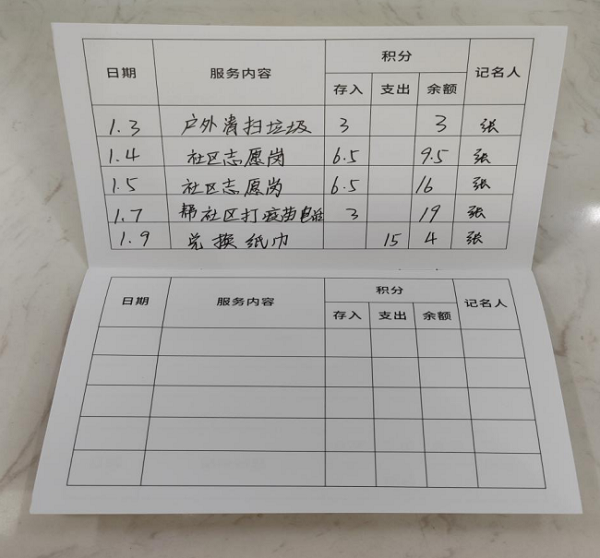 日期 服务内容 积分 记名人
存入 支出 余额
1.3 户外清扫垃圾 3 3 张
1.4 社区志愿岗 6.5 9.5 张
1.5 社区志愿岗 6.5 16 张
1.7 帮社区打疫苗电话 3 19 张
1.9 兑换纸巾 15 4 张
日期 服务内容 积分 记名人
存入 支出 余额